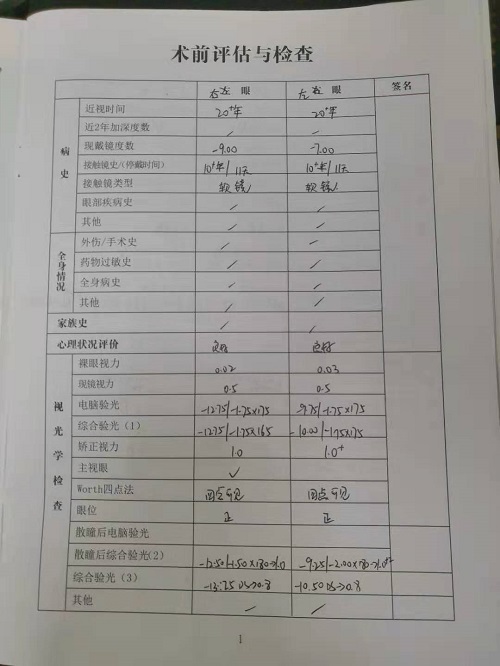 术前评估与检查
右左 眼 左右 眼 签名
病史
近视时间 20+年 20+年
近2年加深度数 / /
现戴镜度数 -9.00 -7.00
接触镜史/(停戴时间) 10+年/11天 10+年/11天
接触镜类型 软镜 软镜
眼部疾病史 / /
其他 / /
全身情况
外伤/手术史 / /
药物过敏史 / /
全身病史 / /
其他 / /
家族史 / /
心理状况评价 良好 良好
视光学检查
裸眼视力 0.02 0.03
现镜视力 0.5 0.5
电脑验光 -12.75/-1.75×175 -9.75/-1.75×175
综合验光(1) -12.75/-1.75×165 -10.00/-1.75×175
矫正视力 1.0 1.0+
主视眼 ✓
Worth四点法 四点可见 四点可见
眼位 正 正
散瞳后电脑验光
散瞳后综合验光(2) -12.50/-1.50×180→1.0 -9.25/-2.00×180→1.0+
综合验光(3) -13.25 DS→0.8 -10.50 DS→0.8
其他 / /
1